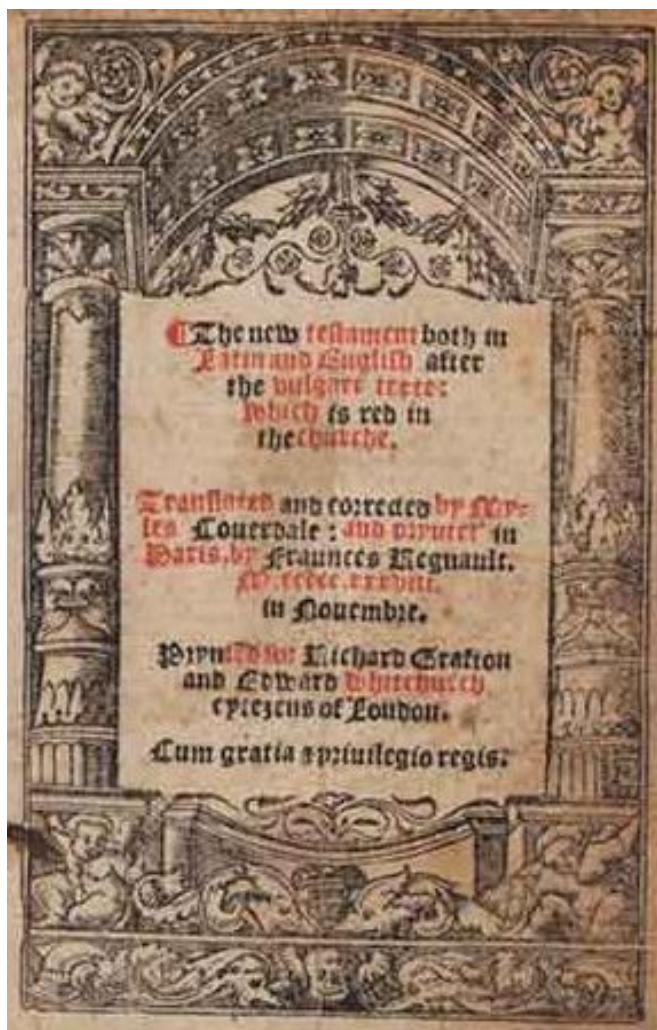 ¶The new testament both in
Latin and English after
the vulgare texte:
Which is red in
the churche.
Translated and corrected by Myr=
les Couerdale: and prynted in
Paris, by Fraunces Regnault.
M.ccccc.xxxviii.
in Nouembre.
Prynted for Richard Grafton
and Edward Whitchurch
cytezens of London.
Cum gratia & priuilegio regis.